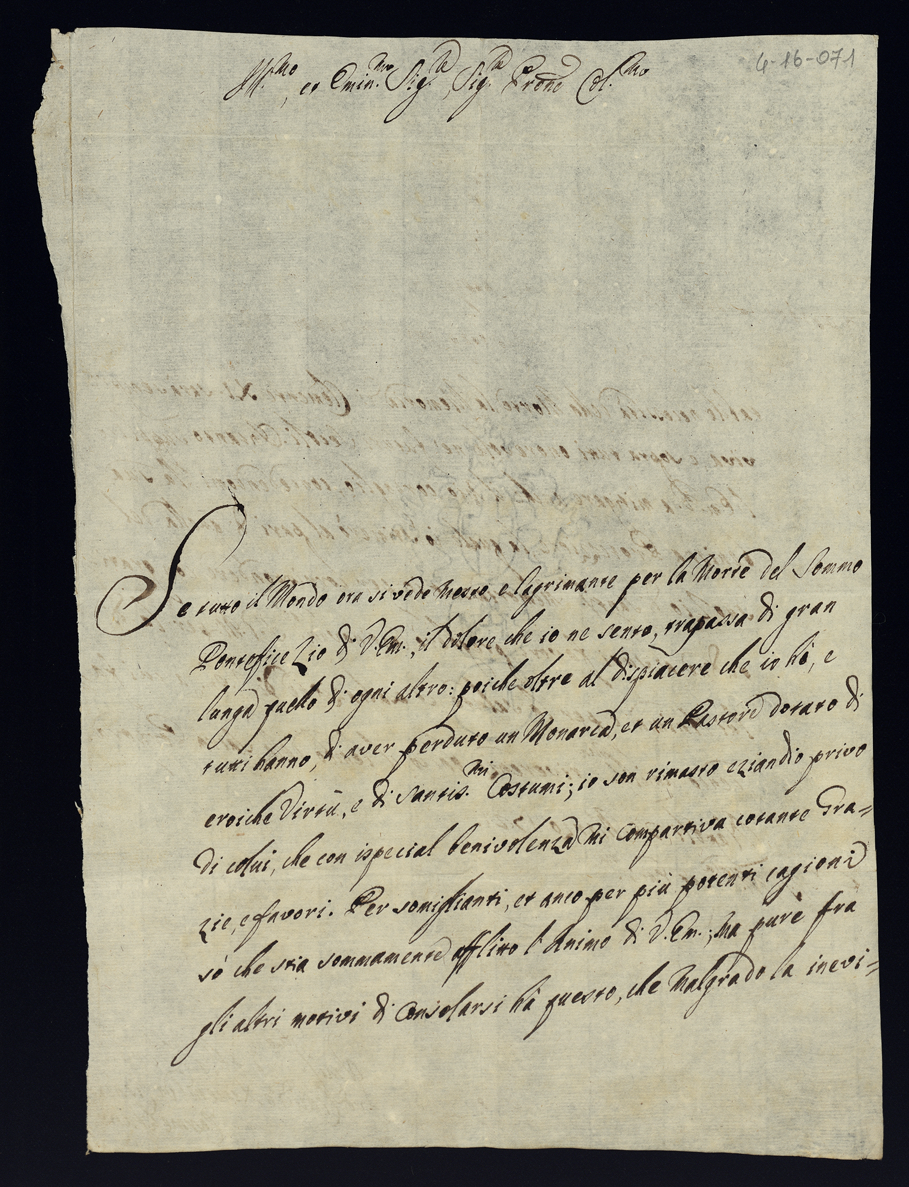 4-16-071
Ill.mo, et Emin.mo Sig.re Sig.re Prone Col.mo
Se tutto il Mondo ora si vede mesto e lagrimante per la Morte del Sommo
Pontefice Zio di V. Em., il dolore che io ne sento, trapassa di gran
lunga quello di ogni altro: poiche oltre al dispiacere che io hò, e
tutti hanno, di aver perduto un Monarca, et un Pastore dotato di
eroiche Virtù, e di Santis.mi Costumi; io son rimasto eziandio privo
di colui, che con ispecial benivolenza mi compartiva cotante Gra=
zie, e favori. Per somiglianti, et anco per più potenti cagioni
sò che stia sommamente afflitto l'Animo di V. Em.; ma pure fra
gli altri motivi di consolarsi hà questo, che malgrado la inevi=